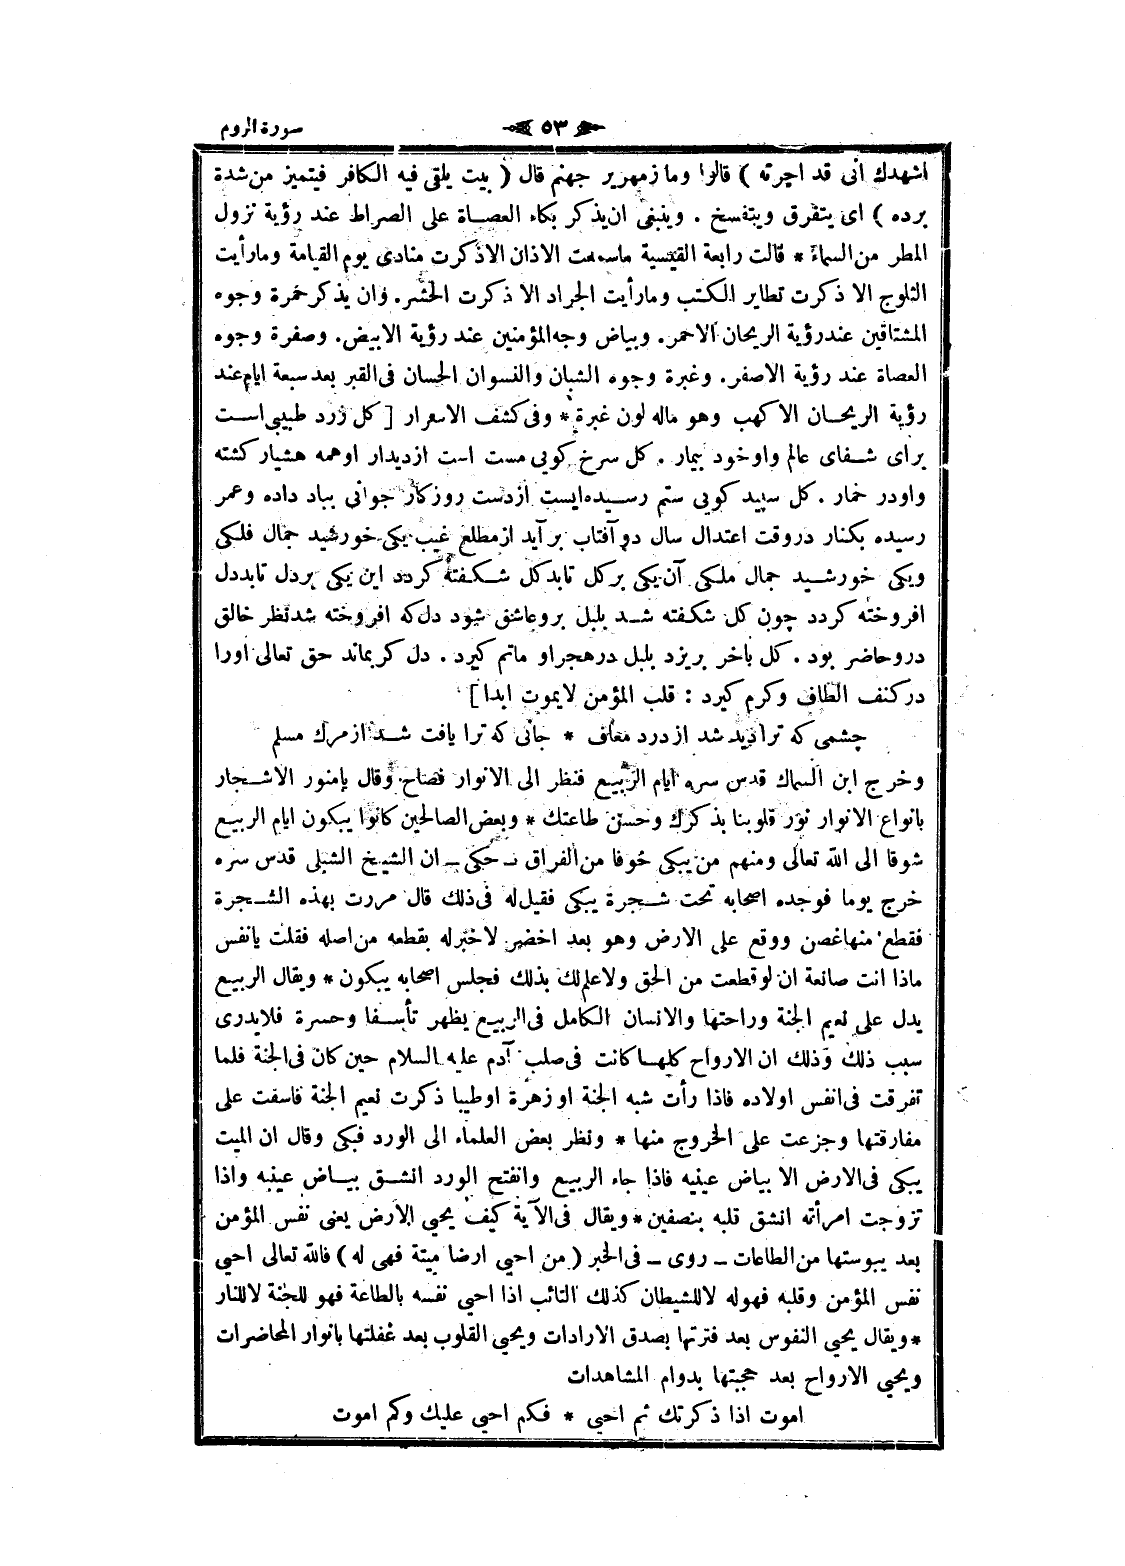 سورة الروم ٥٣
اشهدك انى قد اجرته ) قالوا وما زمهرير جهنم قال ( بيت يلقى فيه الكافر فيتميز من شدة
برده ) اى يتفرق ويتفسخ . وينبغى ان يذكر بكاء العصاة على الصراط عند رؤية نزول
المطر من السماء * قالت رابعة القيسية ماسمعت الاذان الا ذكرت منادى يوم القيامة ومارأيت
الثلوج الا ذكرت تطاير الكتب ومارأيت الجراد الا ذكرت الحشر. وان يذكر حمرة وجوه
المشتاقين عند رؤية الريحان الاحمر. وبياض وجه المؤمنين عند رؤية الابيض. وصفرة وجوه
العصاة عند رؤية الاصفر. وغبرة وجوه الشبان والنسوان الحسان فى القبر بعد سبعة ايام عند
رؤية الريحان الاكهب وهو ماله لون غبرة * وفى كشف الاسرار [ كل زرد طبيبى است
براى شفاى عالم واوخود بيمار . كل سرخ كويى مست است ازديدار اوهمه هشيار كشته
واودر خمار . كل سپيد كويى ستم رسيده ايست ازدست روزكار جوانى بباد داده وعمر
رسيده بكنار دروقت اعتدال سال دو آفتاب بر آيد ازمطلع غيب يكى خورشيد جمال فلكى
ويكى خورشيد جمال ملكى آن يكى بركل تابد كل شكفته كردد اين يكى بردل تابد دل
افروخته كردد چون كل شكفته شد بلبل بروعاشق شود دل كه افروخته شد نظر خالق
دروحاضر بود . كل بآخر بريزد بلبل درهجراو ماتم كيرد . دل كربماند حق تعالى اورا
در كنف الطاف وكرم كيرد : قلب المؤمن لايموت ابدا ]
چشمى كه ترا ديد شد از درد معاف * جانى كه ترا يافت شد از مرك مسلم
وخرج ابن السماك قدس سره ايام الربيع فنظر الى الانوار فصاح وقال يامنور الاشجار
بانواع الانوار نور قلوبنا بذكرك وحسن طاعتك * وبعض الصالحين كانوا يبكون ايام الربيع
شوقا الى الله تعالى ومنهم من يبكى خوفا من الفراق ـ حكى ـ ان الشيخ الشبلى قدس سره
خرج يوما فوجده اصحابه تحت شجرة يبكى فقيل له فى ذلك قال مررت بهذه الشجرة
فقطع منها غصن ووقع على الارض وهو بعد اخضر لاخبرله بقطعه من اصله فقلت يانفس
ماذا انت صانعة ان لو قطعت من الحق ولاعلم لك بذلك فجلس اصحابه يبكون * ويقال الربيع
يدل على نعيم الجنة وراحتها والانسان الكامل فى الربيع يظهر تأسفا وحسرة فلايدرى
سبب ذلك وذلك ان الارواح كلها كانت فى صلب آدم عليه السلام حين كان فى الجنة فلما
تفرقت فى انفس اولاده فاذا رأت شبه الجنة او زهرة اوطيبا ذكرت نعيم الجنة فاسفت على
مفارقتها وجزعت على الخروج منها * ونظر بعض العلماء الى الورد فبكى وقال ان الميت
يبكى فى الارض الا بياض عينيه فاذا جاء الربيع وانفتح الورد انشق بياض عينيه واذا
تزوجت امرأته انشق قلبه بنصفين * ويقال فى الآية كيف يحيى الارض يعنى نفس المؤمن
بعد يبوستها من الطاعات ـ روى ـ فى الخبر ( من احيى ارضا ميتة فهى له ) فالله تعالى احيى
نفس المؤمن وقلبه فهوله لاللشيطان كذلك التائب اذا احيى نفسه بالطاعة فهو للجنة لاللنار
* ويقال يحيى النفوس بعد فترتها بصدق الارادات ويحيى القلوب بعد غفلتها بانوار المحاضرات
ويحيى الارواح بعد حجبتها بدوام المشاهدات
اموت اذا ذكرتك ثم احيى * فكم احيى عليك وكم اموت